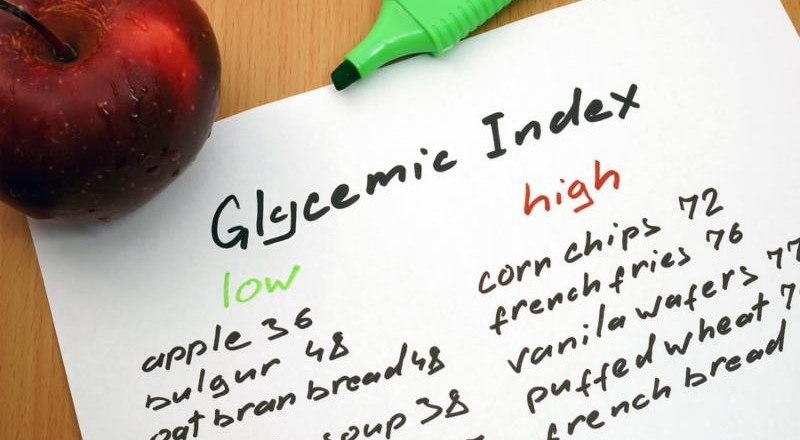 Glycemic Index
low
apple 36
bulgur 48
oat bran bread 48
soup 38
high
corn chips 72
french fries 76
vanila wafers 77
puffed wheat
french bread